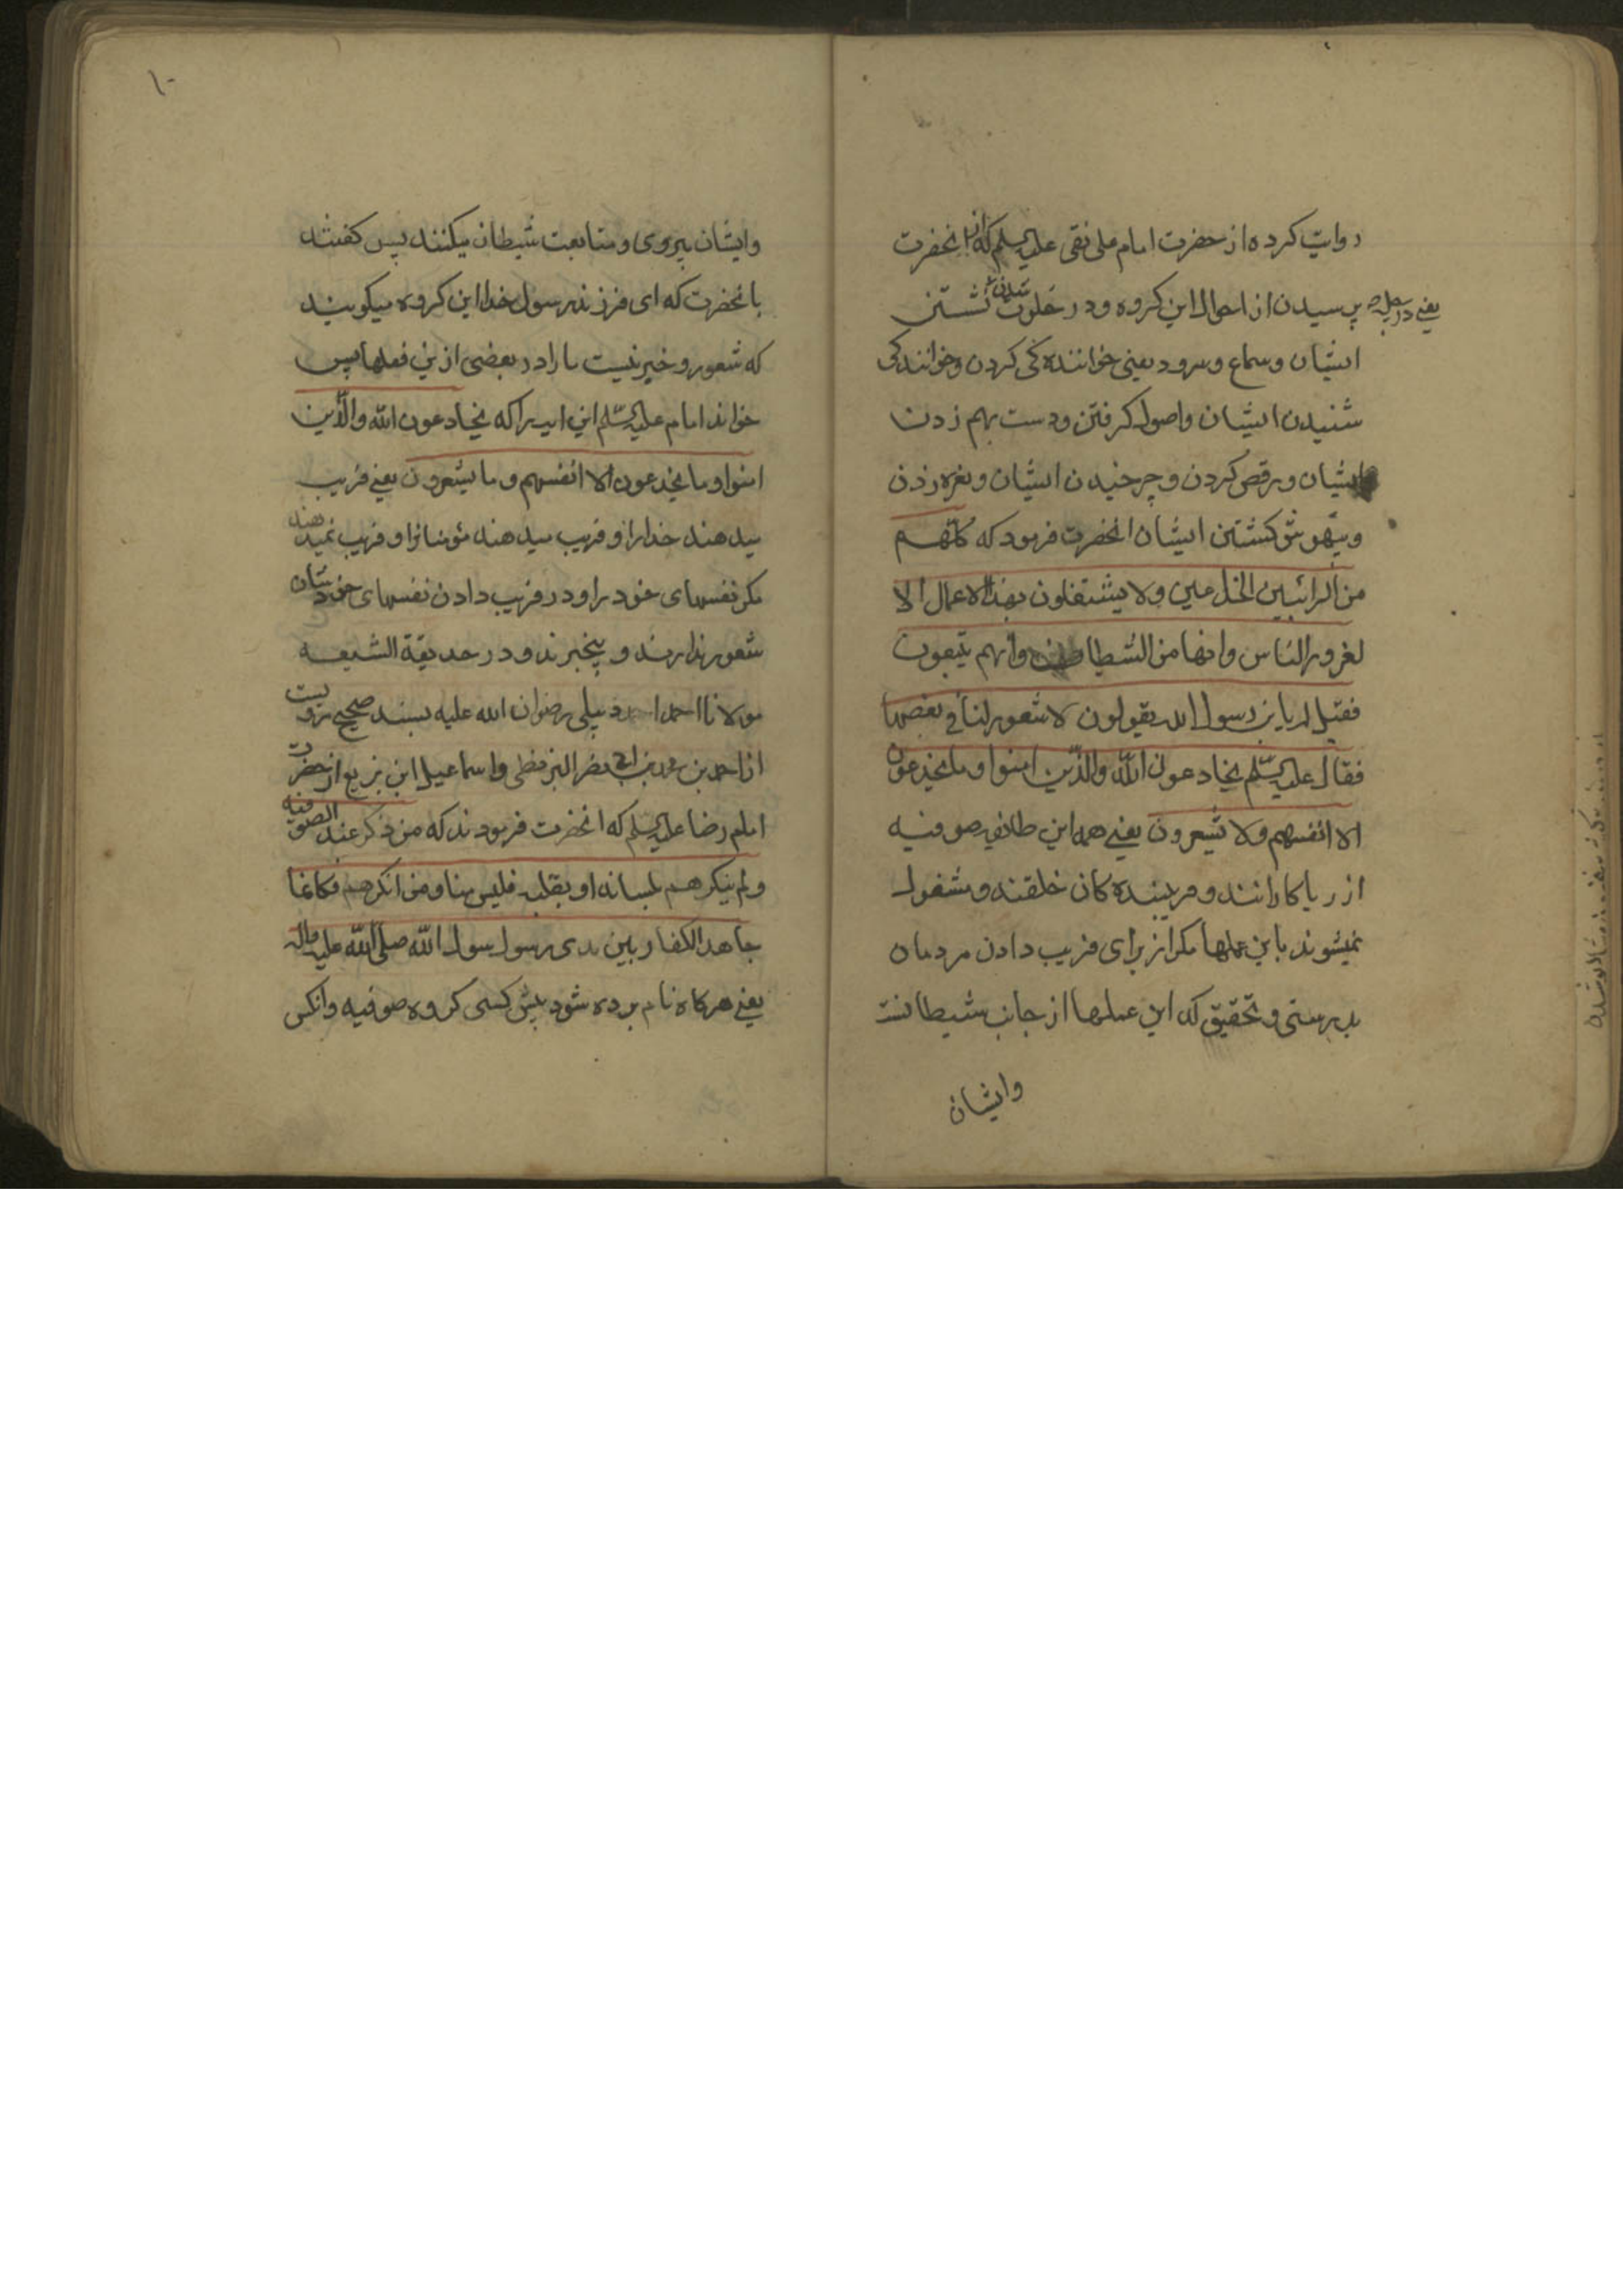 روایت کرده از حضرت امام علی نقی علیه السلم که از انحضرت
پرسیدن از احوال این کروه و در خلوت نشستن
یعنی در چله شدن
ایشان و سماع و سرود یعنی خواننده کی کردن و خوانندکی
شنیدن ایشان و اصول کرفتن و دست بهم زدن
ایشان و رقص کردن و چرخیدن ایشان و نعره زدن
و بیهوش کشتن ایشان انحضرت فرمود که کلهم
من المرائیین الخداعین ولا یشتغلون بهذا الاعمال الا
لغرور الناس وانها من الشیطان وانهم یتبعون
فقیل له یابن رسول الله یقولون لا شعور لنا فی بعضها
فقال علیه السلم یخادعون الله والذین امنوا وما یخدعون
الا انفسهم ولا یشعرون یعنی همه این طائفه صوفیه
از ریاکارانند و فریبنده کان خلقند و مشغول
نمیشوند باین عملها مکر از برای فریب دادن مردمان
بدرستی و تحقیق که این عملها از جانب شیطانست
وایشان
۱۰
وایشان پیروی و متابعت شیطان میکنند پس کفتند
بانحضرت که ای فرزند رسول خدا این کروه میکویند
که شعور و خبر نیست ما را در بعضی ازین فعلها پس
خواند امام علیه السلم این ایه را که یخادعون الله والذین
امنوا وما یخدعون الا انفسهم وما یشعرون یعنی فریب
میدهند خدا را و فریب میدهند مؤمنانرا و فریب نمیدهند
مکر نفسهای خود را و در فریب دادن نفسهای خودشان
شعور ندارند و بیخبرند و در حدیقة الشیعه
مولانا احمد اردبیلی رضوان الله علیه بسند صحیح مرویست
از احمد بن محمد بن ابی نصر البزنطی و اسماعیل ابن بزیع از حضرت
امام رضا علیه السلم که انحضرت فرمودند که من ذکر عنده الصوفیه
ولم ینکرهم بلسانه او بقلبه فلیس منا ومن انکرهم فکانما
جاهد الکفار بین یدی رسول الله صلی الله علیه واله
یعنی هرکاه نام برده شود پیش کسی کروه صوفیه وانکس